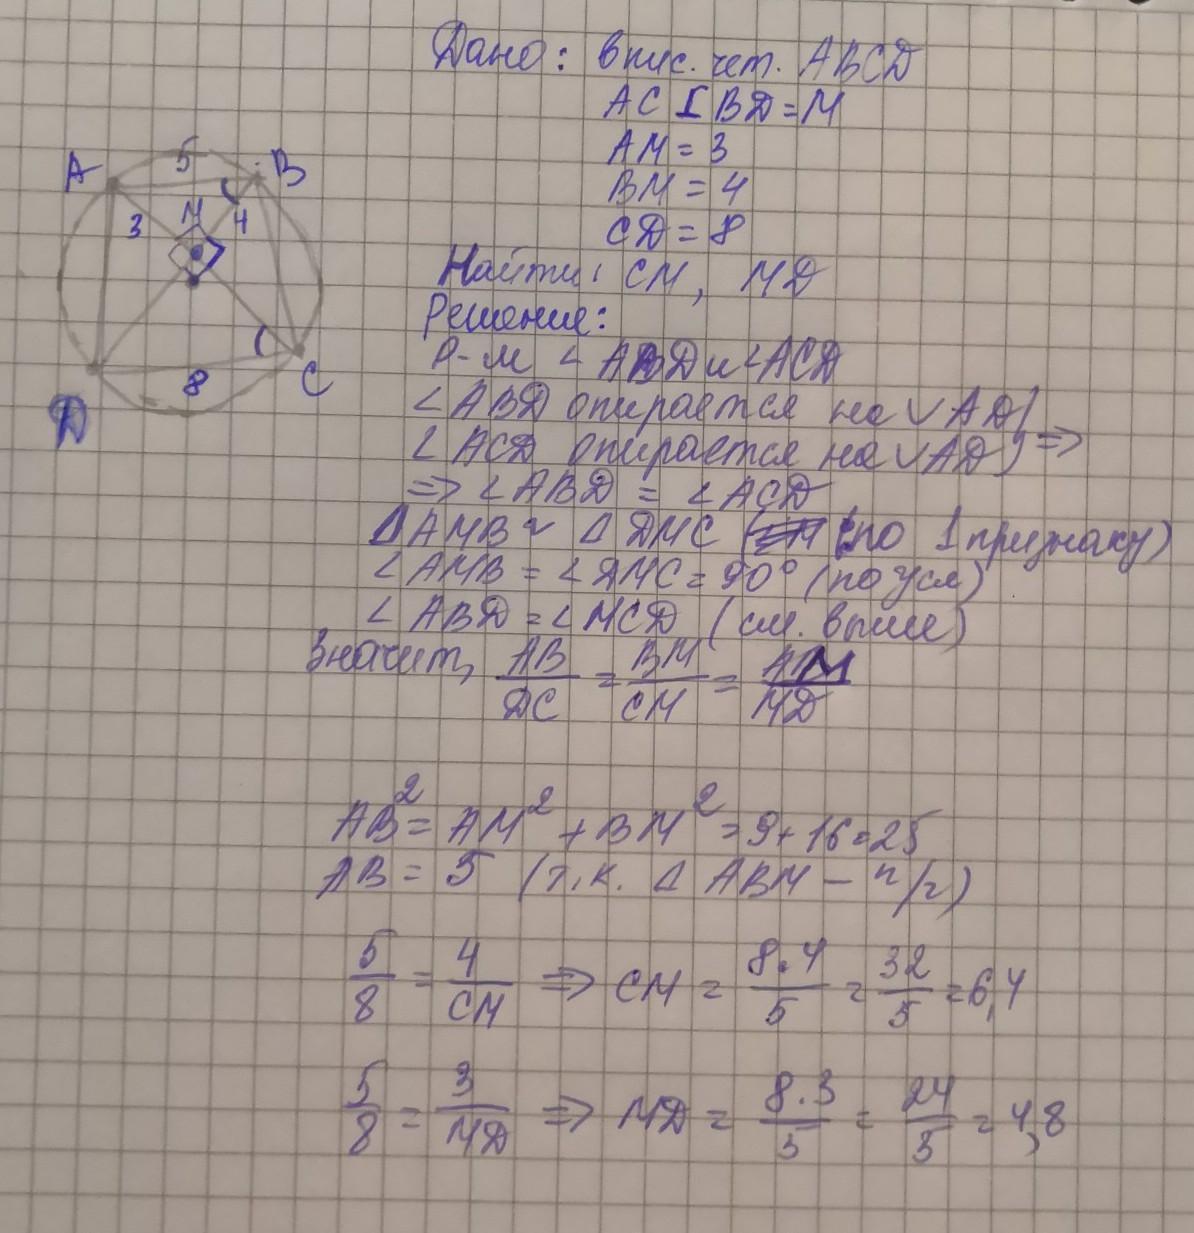 Дано: впис. чет. ABCD
AC ⊥ BD = M
AM = 3
BM = 4
CD = 8
Найти: CM, MD
Решение:
Р-м ∠ABD и ∠ACD
∠ABD опирается на ◡AD }
∠ACD опирается на ◡AD } =>
=> ∠ABD = ∠ACD
ΔAMB ~ ΔDMC (по 1 признаку)
∠AMB = ∠DMC = 90° (по усл)
∠ABD = ∠MCD (см. выше)
Значит, AB/DC = BM/CM = AM/MD
AB² = AM² + BM² = 9 + 16 = 25
AB = 5 (т.к. Δ ABM – п/г)
5/8 = 4/CM => CM = 8·4/5 = 32/5 = 6,4
5/8 = 3/MD => MD = 8·3/5 = 24/5 = 4,8
A 5 B
3 M 4
8 C
D